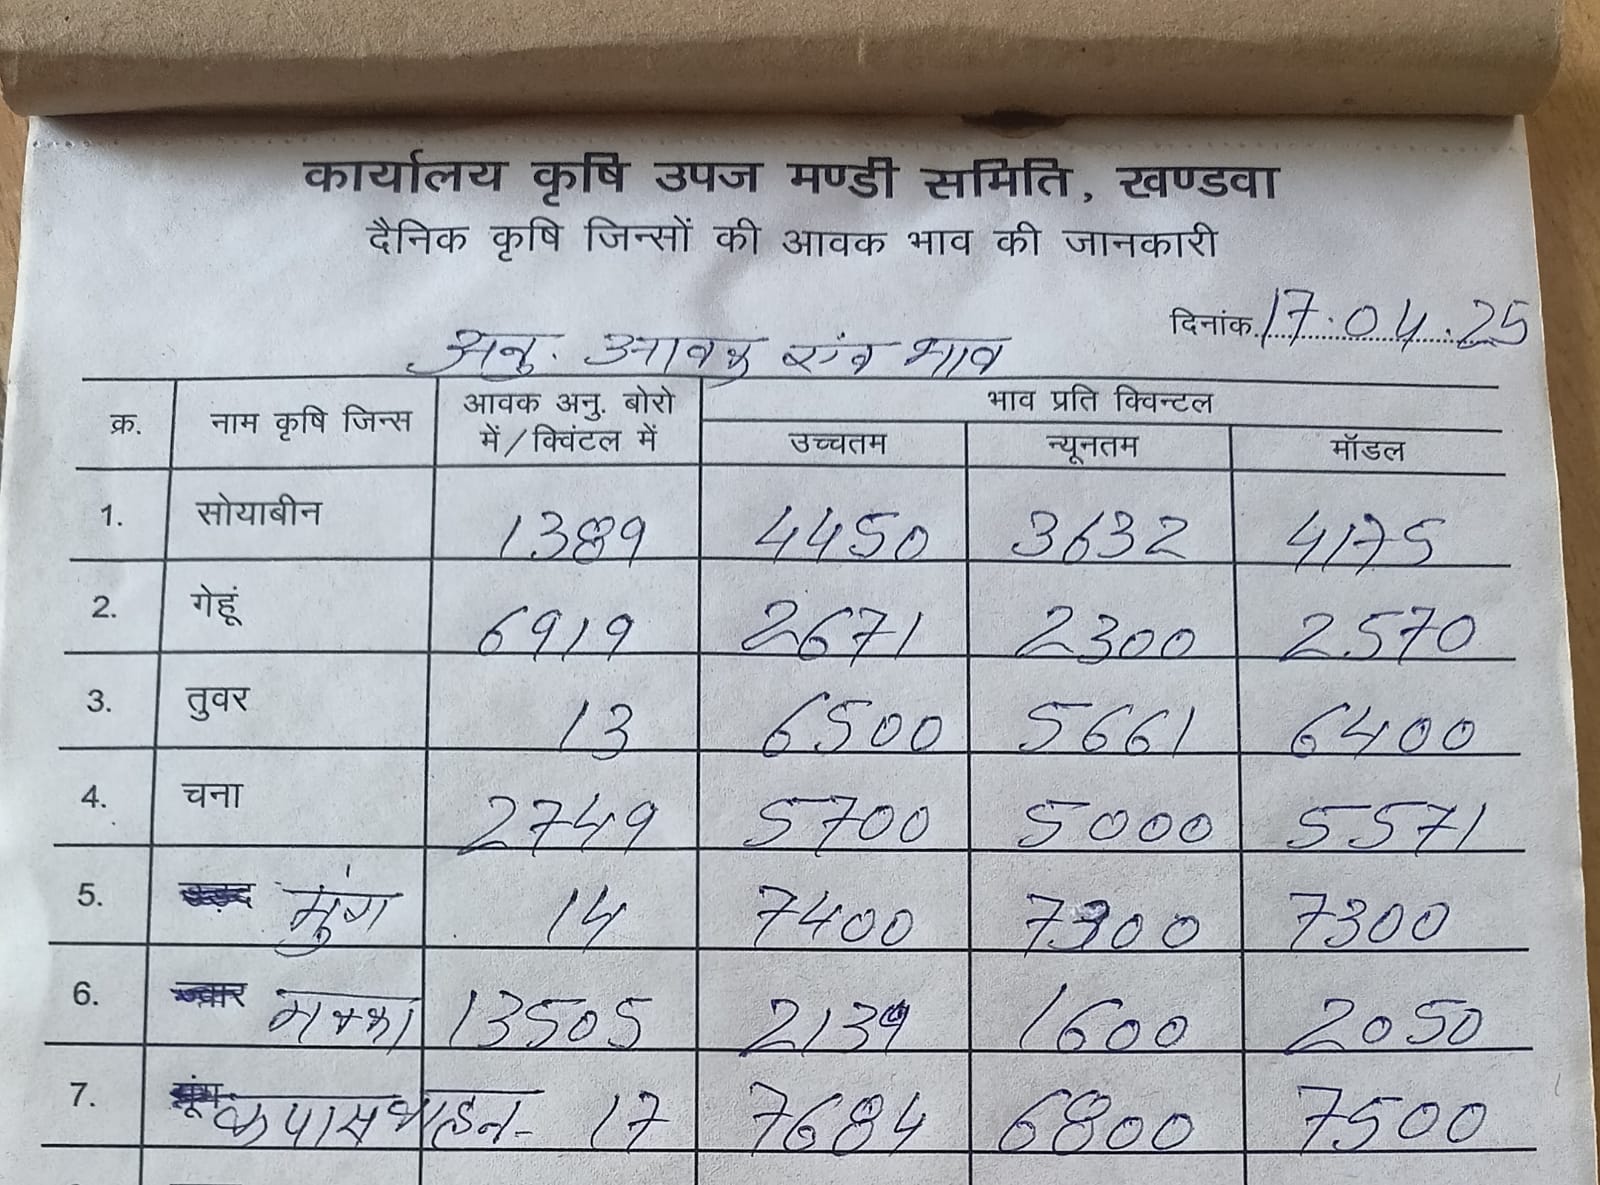 कार्यालय कृषि उपज मण्डी समिति, खण्डवा
दैनिक कृषि जिन्सों की आवक भाव की जानकारी
दिनांक 17.04.25
अनु. आवक एंव भाव
क्र. नाम कृषि जिन्स आवक अनु. बोरो में/क्विंटल में भाव प्रति क्विन्टल
उच्चतम न्यूनतम मॉडल
1. सोयाबीन 1389 4450 3632 4175
2. गेहूं 6919 2671 2300 2570
3. तुवर 13 6500 5661 6400
4. चना 2749 5700 5000 5571
5. मुंग 14 7400 7300 7300
6. मक्का 13505 2139 1600 2050
7. कपास वाहन- 17 7684 6800 7500